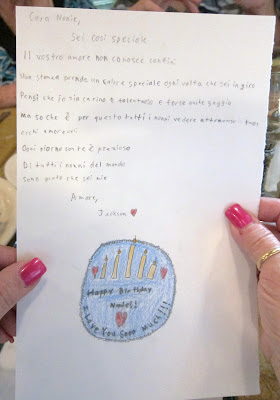 Cara Nonie,
Sei cosi speciale
Il vostro amore non conosce confini.
Una stanza prende un calore speciale ogni volta che sei in giro
Pensi che io sia carino e talentuoso e forse anche saggio
Ma so che è per questo tutti i nonni vedere attraverso i tuoi
occhi amorevoli
Ogni giorno con te è prezioso
Di tutti i nonni del mondo
sono grato che sei mia
Amore,
Jackson
Happy Birthday
Nonie!!
I Love You Sooo Much!!!